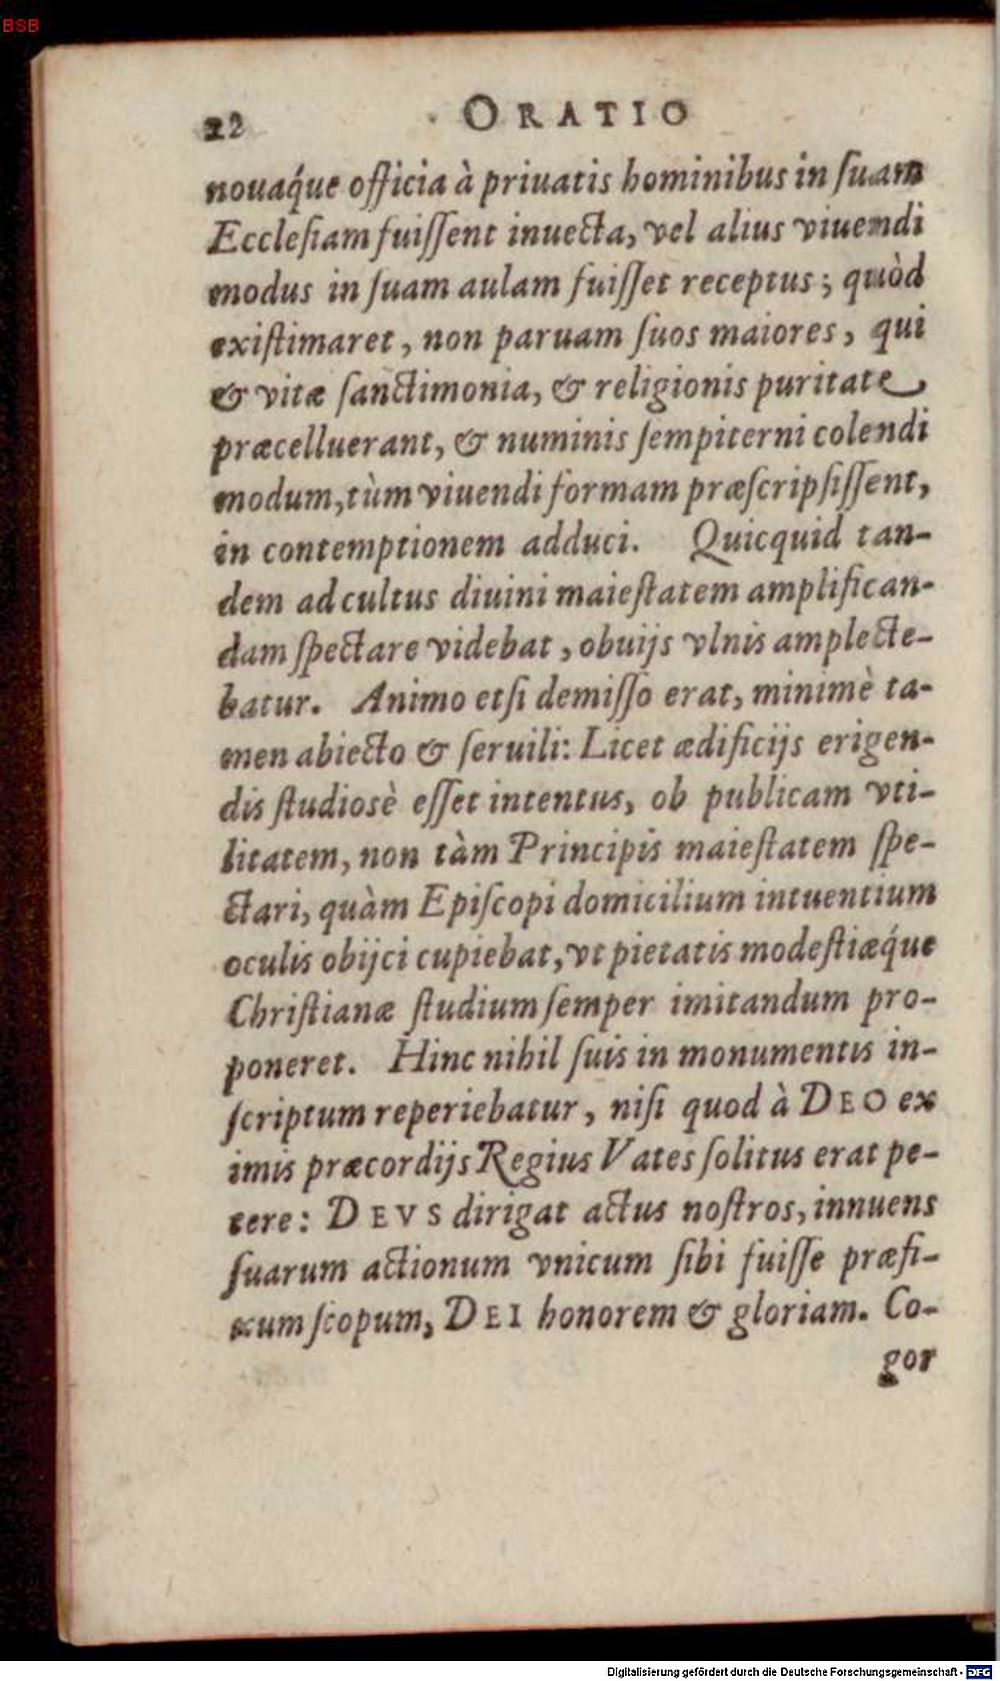 BSB
22 ORATIO
nouaq́ue officia à priuatis hominibus in ſuam
Eccleſiam fuiſſent inuecta, vel alius viuendi
modus in ſuam aulam fuiſſet receptus; quòd
exiſtimaret, non paruam ſuos maiores, qui
& vitæ ſanctimonia, & religionis puritate
præcelluerant, & numinis ſempiterni colendi
modum, tùm viuendi formam præſcripſiſſent,
in contemptionem adduci. Quicquid tan-
dem ad cultus diuini maieſtatem amplifican-
dam ſpectare videbat, obuijs vlnis amplecte-
batur. Animo etſi demiſſo erat, minimè ta-
men abiecto & ſeruili: Licet ædificijs erigen-
dis ſtudiosè eſſet intentus, ob publicam vti-
litatem, non tàm Principis maieſtatem ſpe-
ctari, quàm Epiſcopi domicilium intuentium
oculis obijci cupiebat, vt pietatis modeſtiæq́ue
Chriſtianæ ſtudium ſemper imitandum pro-
poneret. Hinc nihil ſuis in monumentis in-
ſcriptum reperiebatur, niſi quod à DEO ex
imis præcordijs Regius Vates ſolitus erat pe-
tere: DEVS dirigat actus noſtros, innuens
ſuarum actionum vnicum ſibi fuiſſe præfi-
xum ſcopum, DEI honorem & gloriam. Co-
gor
Digitalisierung gefördert durch die Deutsche Forschungsgemeinschaft - DFG